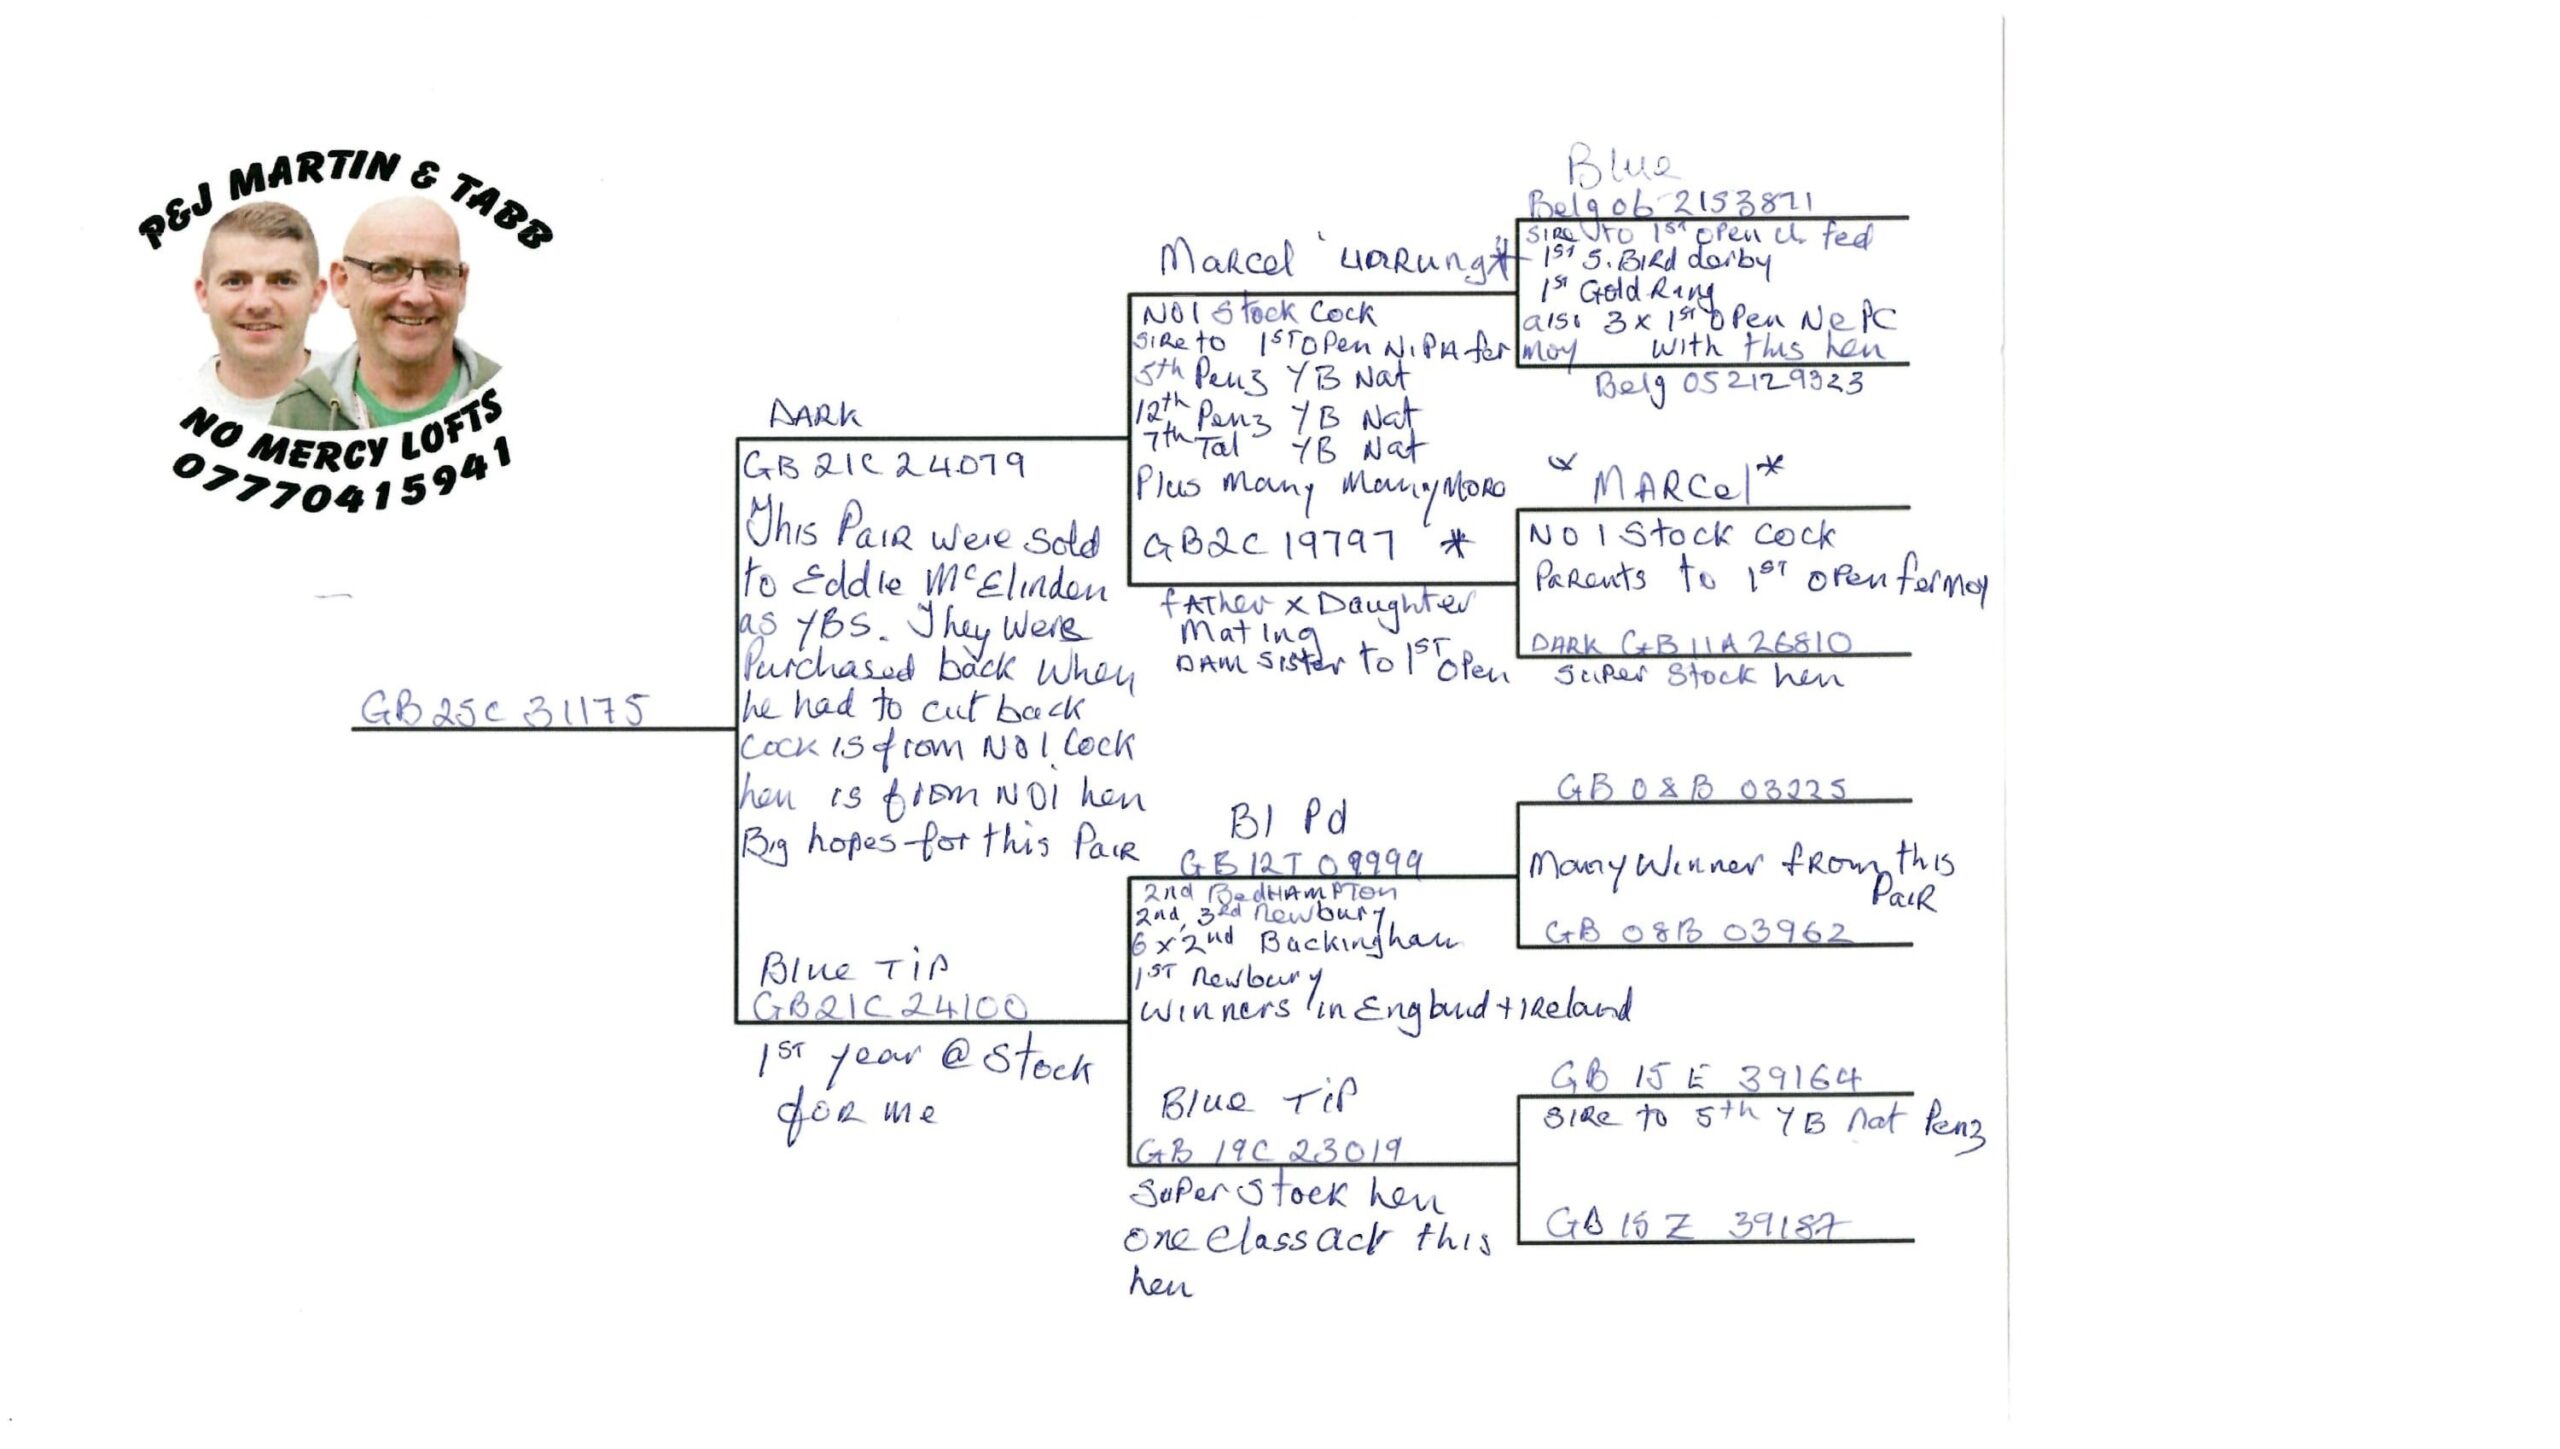 P&J MARTIN & TABB
NO MERCY LOFTS
07770415941
GB 25C 31175
DARK
GB 21C 24079
This Pair were Sold
to Eddie McElinden
as YBS. They Were
Purchased back When
he had to cut back
Cock is from NO1 Cock
hen is from NO1 hen
Big hopes for this Pair
Blue Tip
GB21C 24100
1ST year @ Stock
for me
Marcel
NO1 Stock Cock
Sire to 1ST Open N.I.P.A fermoy
5th Penz YB Nat
12th Penz YB Nat
7th Tal YB Nat
Plus Many Many More
GB2C 19797 *
father x Daughter
Mating
DAM Sister to 1ST Open
Bl Pd
GB 12T 09999
2nd BedHAMPTon
2nd, 3rd Newbury
6 x 2nd Buckingham
1ST Newbury
Winners in England + Ireland
Blue Tip
GB 19C 23019
Super Stock hen
One Class act this
hen
Blue
Belg 06 2153871
Sire to 1ST Open fed
1ST S. Bird derby
1ST Gold Ring
also 3 x 1ST Open NePC
With this hen
Belg 05 2129323
"MARCel*
NO 1 Stock Cock
Parents to 1ST Open fermoy
DARK GB 11A 26810
Super Stock hen
GB 08B 03225
Many Winner from this
Pair
GB 08B 03962
GB 15 E 39164
Sire to 5th YB Nat Penz
GB 15 Z 39187